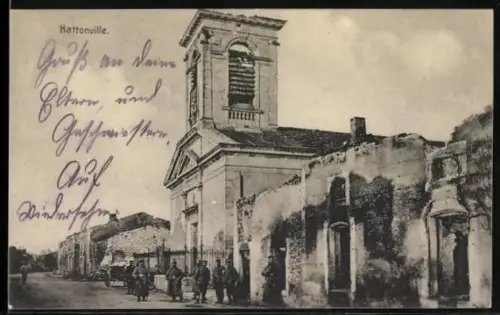 Hattonville.
Gruß an deine
Eltern, und
Geschwister,
Auf
Wiedersehn